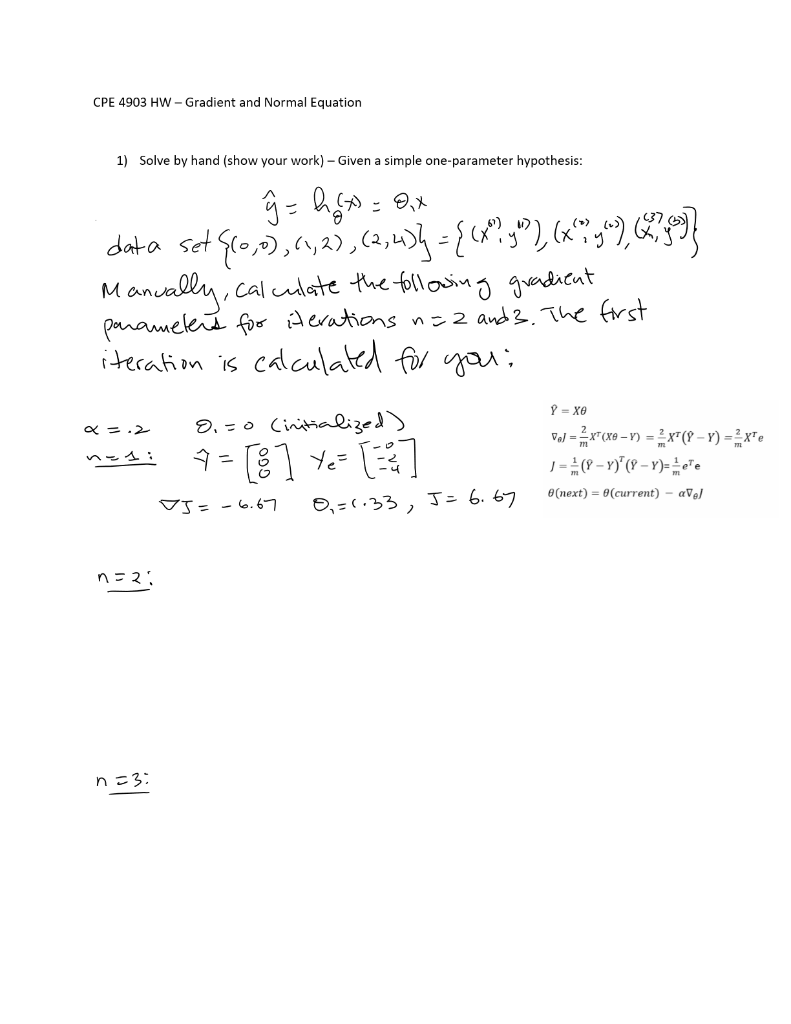 CPE 4903 HW – Gradient and Normal Equation
1) Solve by hand (show your work) – Given a simple one-parameter hypothesis:
ŷ = h_θ(x) = θ₁x
data set {(0,0), (1,2), (2,4)} = {(x⁽¹⁾, y⁽¹⁾), (x⁽²⁾, y⁽²⁾), (x⁽³⁾, y⁽³⁾)}
Manually, calculate the following gradient
parameters for iterations n = 2 and 3. The first
iteration is calculated for you:
α = .2 θ₁ = 0 (initialized)
n = 1: Ŷ = [0 0 0] Ye = [-0 -2 -4]
∇J = -6.67 θ₁ = 1.33, J = 6.67
Ŷ = Xθ
∇_θJ = 2/m Xᵀ(Xθ − Y) = 2/m Xᵀ(Ŷ − Y) = 2/m Xᵀe
J = 1/m (Ŷ − Y)ᵀ(Ŷ − Y)= 1/m eᵀe
θ(next) = θ(current) − α∇_θJ
n = 2:
n = 3: